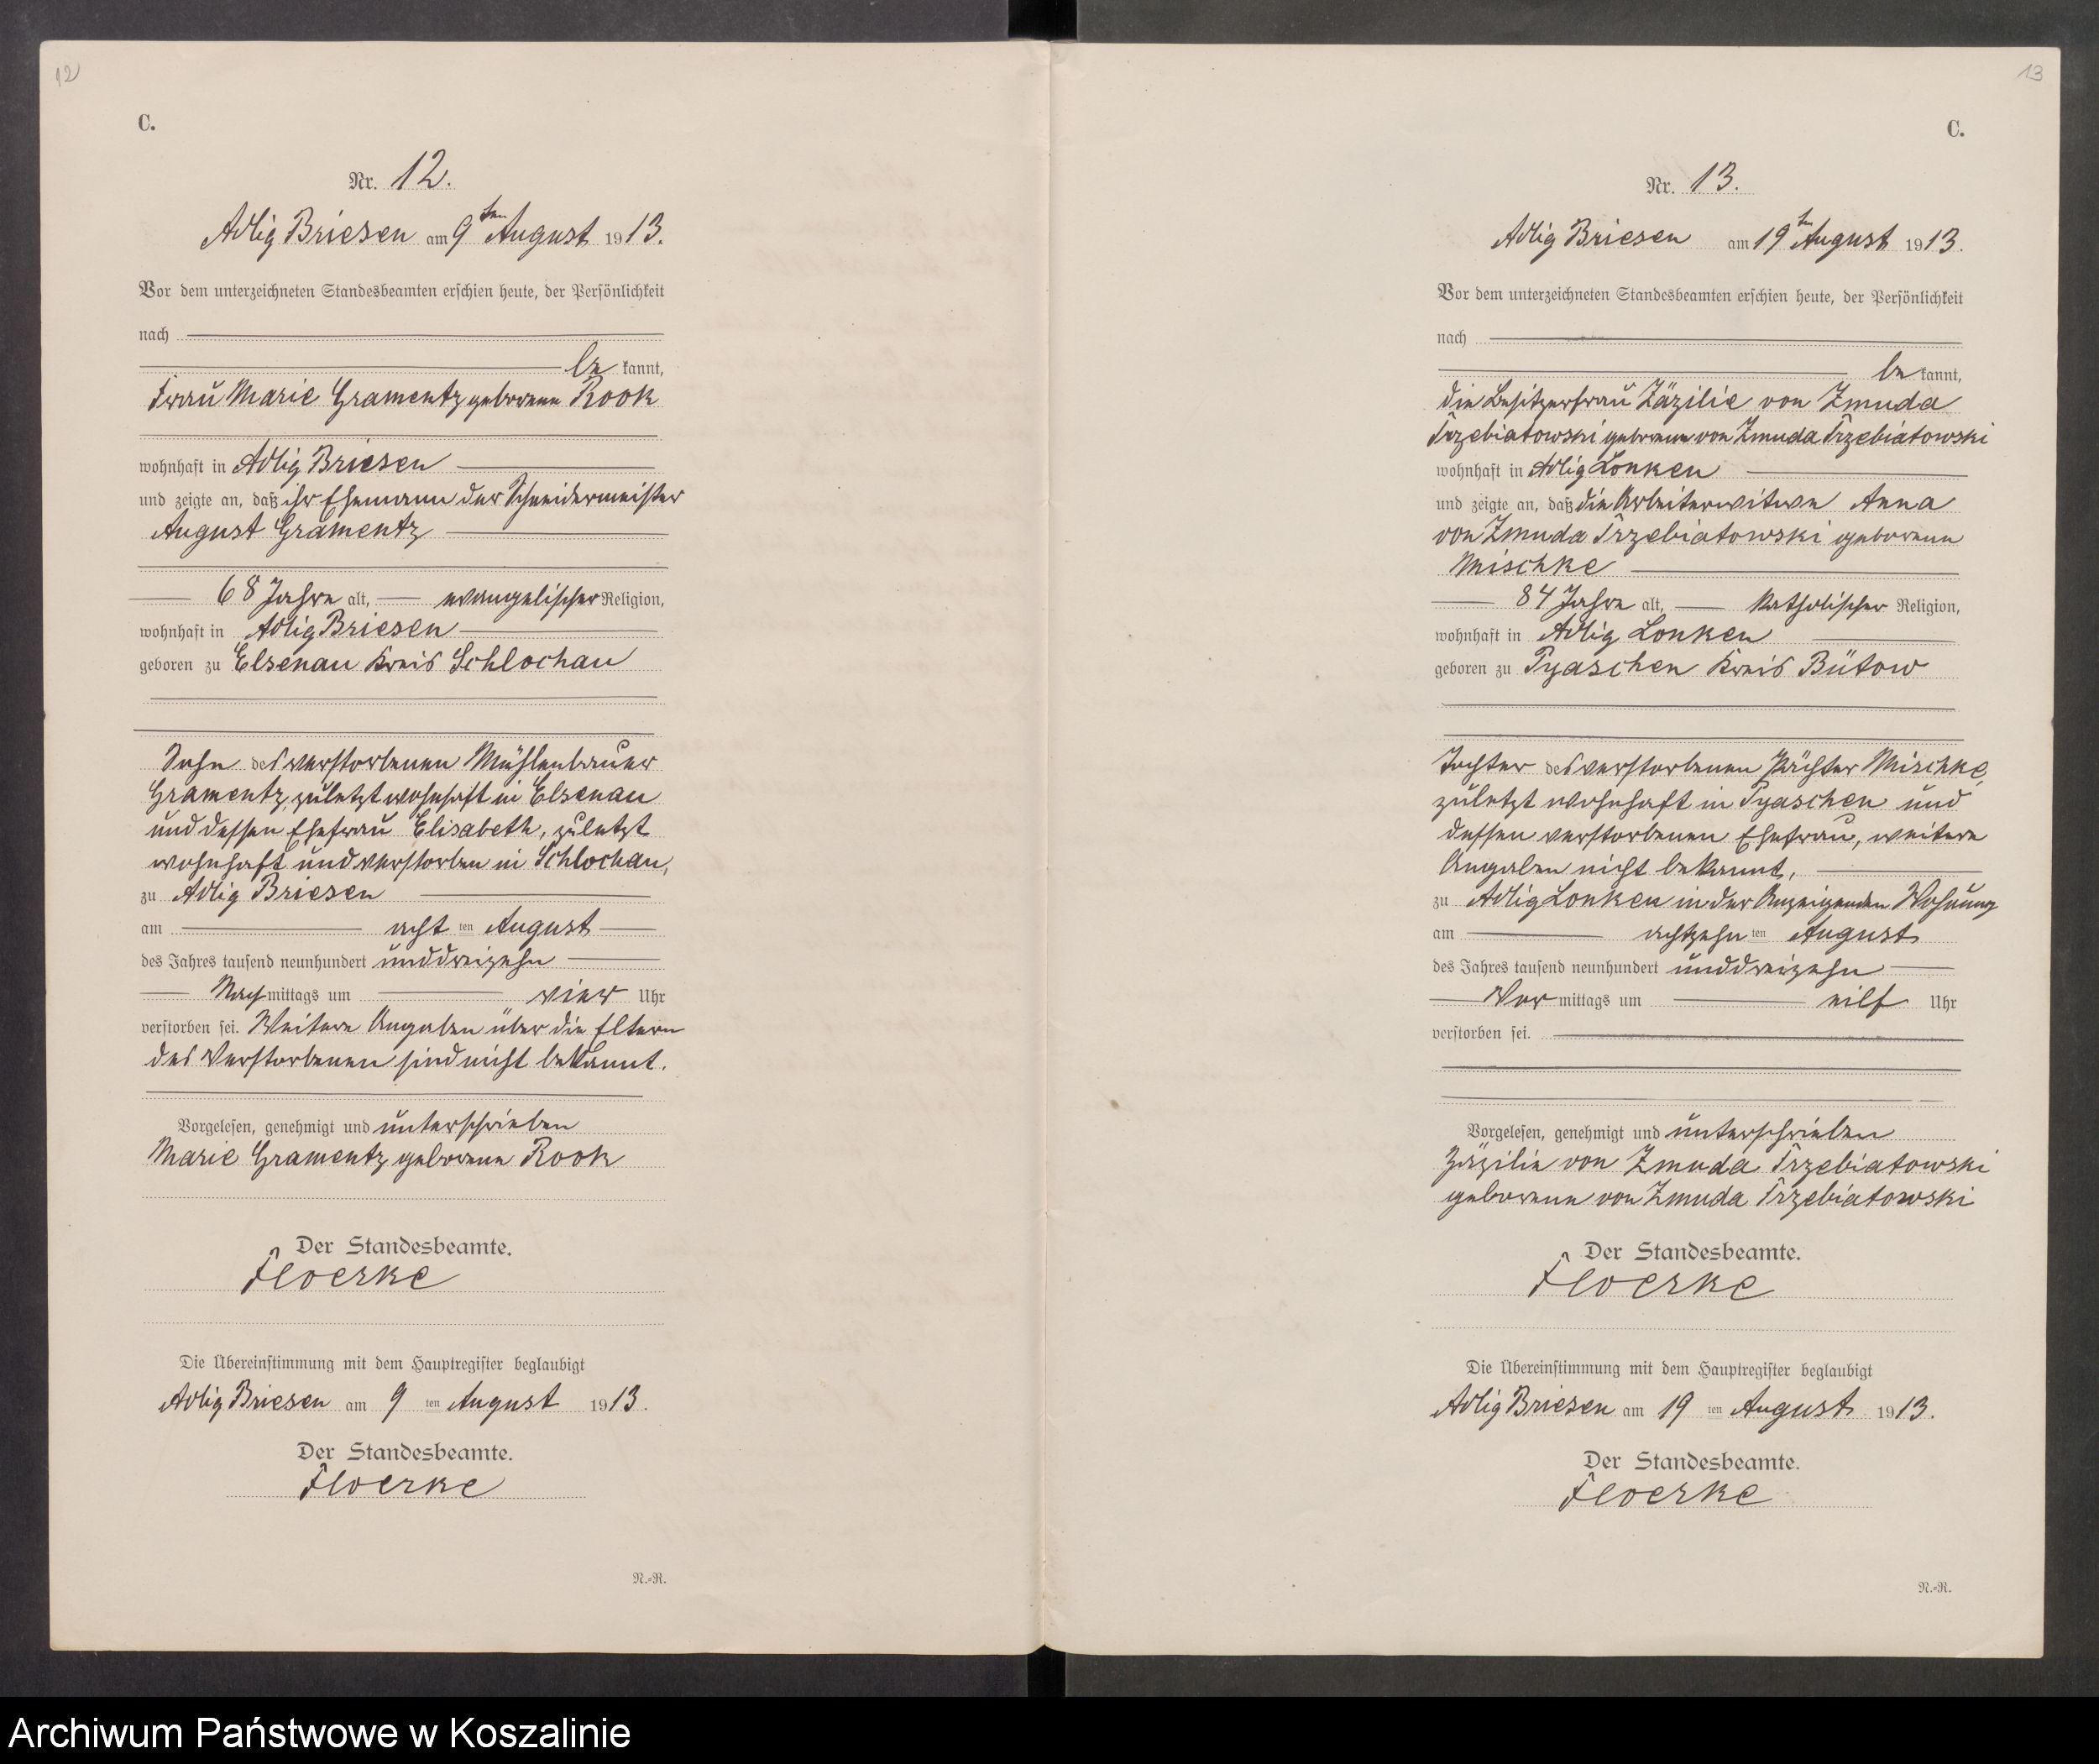 12
C.
Nr. 12.
Adlig Briesen am 9ten August 1913.
Vor dem unterzeichneten Standesbeamten erschien heute, der Persönlichkeit
nach
be kannt,
Frau Marie Gramentz geborene Rook
wohnhaft in Adlig Briesen
und zeigte an, daß ihr Ehemann der Schneidermeister
August Gramentz
68 Jahre alt, evangelischer Religion,
wohnhaft in Adlig Briesen
geboren zu Elsenau Kreis Schlochau
Sohn des verstorbenen Mühlenbauer
Gramentz, zuletzt wohnhaft in Elsenau
und dessen Ehefrau Elisabeth, zuletzt
wohnhaft und verstorben in Schlochau,
zu Adlig Briesen
am acht ten August
des Jahres tausend neunhundert unddreizehn
Nachmittags um vier Uhr
verstorben sei. Weitere Angaben über die Eltern
des Verstorbenen sind nicht bekannt.
Vorgelesen, genehmigt und unterschrieben
Marie Gramentz geborene Rook
Der Standesbeamte.
Floerke
Die Übereinstimmung mit dem Hauptregister beglaubigt
Adlig Briesen am 9 ten August 1913.
Der Standesbeamte.
Floerke
N.-R.
13
C.
Nr. 13.
Adlig Briesen am 19ten August 1913.
Vor dem unterzeichneten Standesbeamten erschien heute, der Persönlichkeit
nach
be kannt,
die Besitzerfrau Zäzilie von Zmuda
Trzebiatowski geborene von Zmuda Trzebiatowski
wohnhaft in Adlig Lonken
und zeigte an, daß die Arbeiterwitwe Anna
von Zmuda Trzebiatowski geborene
Mischke
84 Jahre alt, katholischer Religion,
wohnhaft in Adlig Lonken
geboren zu Pyaschen Kreis Bütow
Tochter des verstorbenen Pächter Mischke,
zuletzt wohnhaft in Pyaschen und
dessen verstorbenen Ehefrau, weitere
Angaben nicht bekannt,
zu Adlig Lonken in der Anzeigenden Wohnung
am achtzehn ten August
des Jahres tausend neunhundert unddreizehn
Vormittags um eilf Uhr
verstorben sei.
Vorgelesen, genehmigt und unterschrieben
Zäzilie von Zmuda Trzebiatowski
geborene von Zmuda Trzebiatowski
Der Standesbeamte.
Floerke
Die Übereinstimmung mit dem Hauptregister beglaubigt
Adlig Briesen am 19 ten August 1913.
Der Standesbeamte.
Floerke
N.-R.
Archiwum Państwowe w Koszalinie